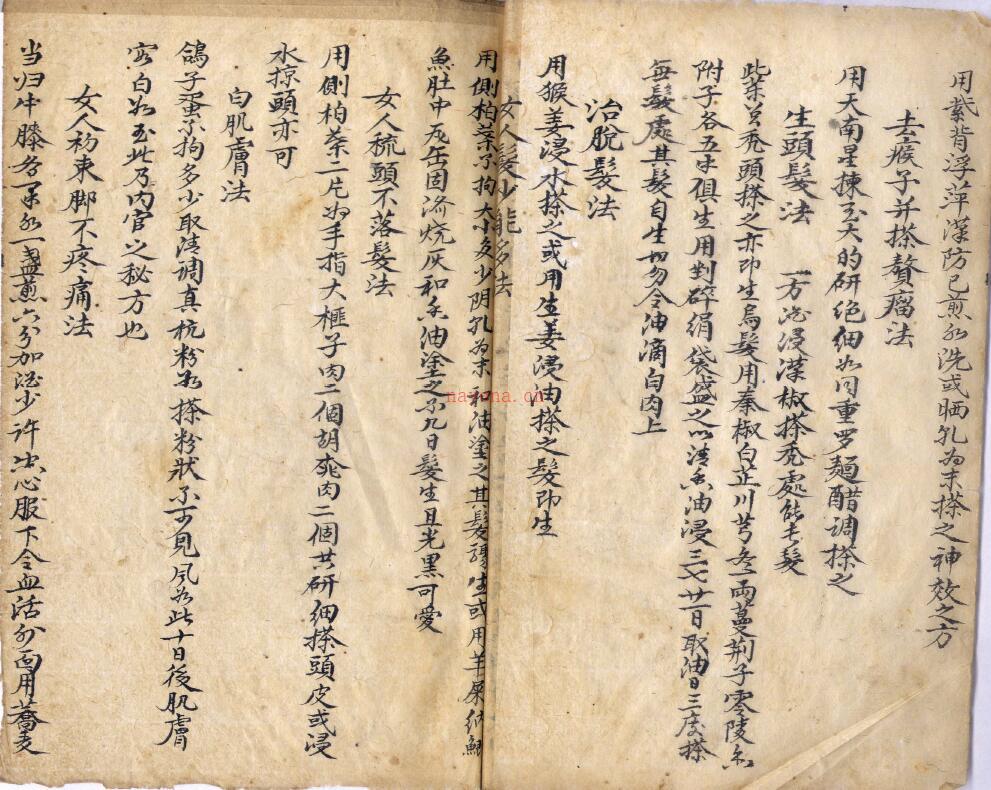 用紫背浮萍漢防已煎水洗或晒乹為末搽之神效之方
去瘊子并搽贅瘤法
用天南星揀至大的研絕細如同重罗麵醋調搽之
生頭髮法 一方酒浸漢椒搽秃處能生髮
柴 秃頭搽之亦即生烏髮用秦椒白芷川芎各一两蔓荆子零陵
附子各五 俱生用剉碎絹袋盛之以清香油浸三七廿一日取油日三度搽
無髮處其髮自生切勿令油滴白肉上
治脫髮法
用猴姜浸水搽之或用生姜浸油搽之髮即生
女人髮少能多法
用側柏葉不拘大小多少阴乹為末和油塗之其髮 生或用羊屎納鯽
魚肚中瓦缶固济烧灰和香油塗之不九日髮生且光黑可愛
女人梳頭不落髮法
用側柏葉二片如手指大榧子肉二個胡桃肉二個共研細搽頭皮或浸
水掠頭亦可
白肌膚法
鴿子蛋不拘多少取清調真杭粉如搽粉狀不可見风如此十日後肌膚
白如玉此乃内官之秘方也
女人初束脚不疼痛法
当归牛膝各 水一盞煎六分加酒少許空心服下令血活外面用蕎麦
nayona.cn